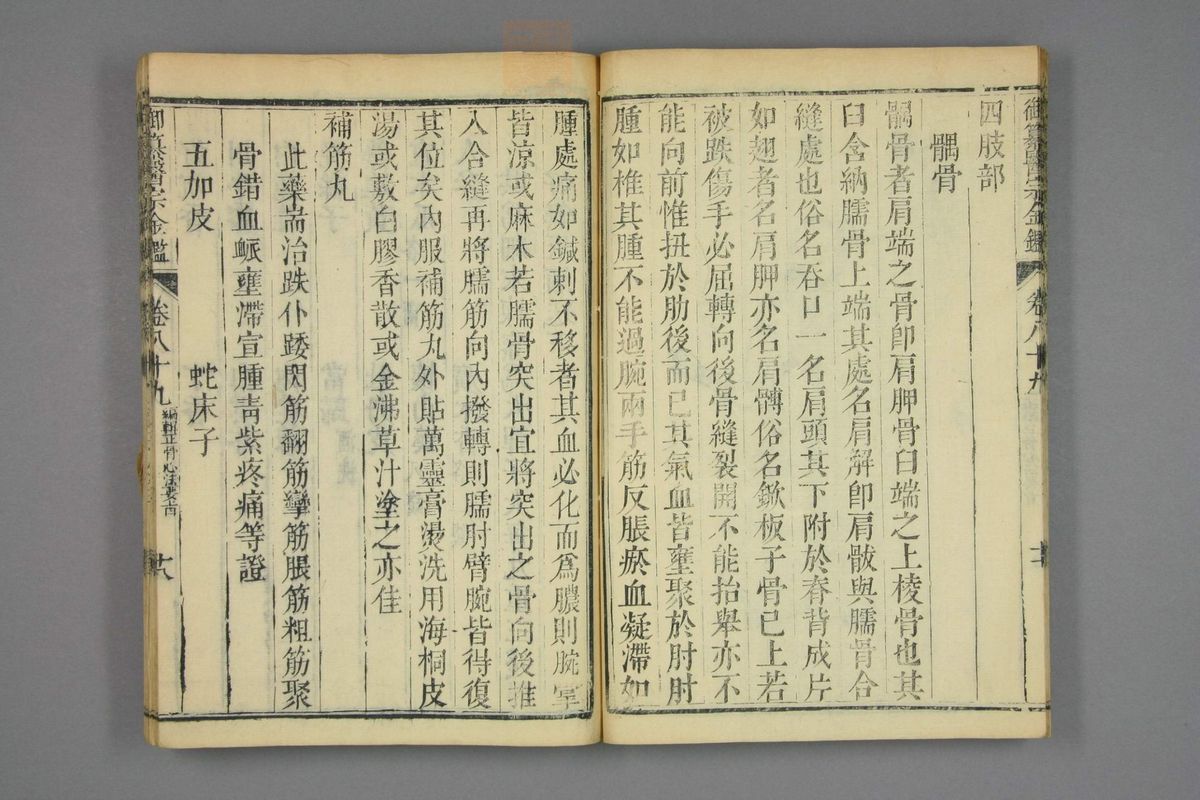 御纂醫宗金鑑 卷八十九
四肢部
髃骨
髃骨者肩端之骨卽肩胛骨臼端之上棱骨也其
臼含納臑骨上端其處名肩解卽肩骸與臑骨合
縫處也俗名吞口一名肩頭其下附於脊背成片
如翅者名肩胛亦名肩髆俗名鍁板子骨已上若
被跌傷手必屈轉向後骨縫裂開不能抬舉亦不
能向前惟扭於肋後而已其氣血皆壅聚於肘肘
腫如椎其腫不能過腕兩手筋反脹瘀血凝滯如
腫處痛如鍼刺不移者其血必化而爲膿則腕掌
皆涼或麻木若臑骨突出宜將突出之骨向後推
入合縫再將臑筋向內撥轉則臑肘臂腕皆得復
其位矣內服補筋丸外貼萬靈膏燙洗用海桐皮
湯或敷白膠香散或金沸草汁塗之亦佳
補筋丸
此藥耑治跌仆踒閃筋翻筋攣筋脹筋粗筋聚
骨錯血䘑壅滯宣腫靑紫疼痛等證
五加皮 蛇床子
御纂醫宗金鑑 卷八十九 編輯正骨心法要旨 六